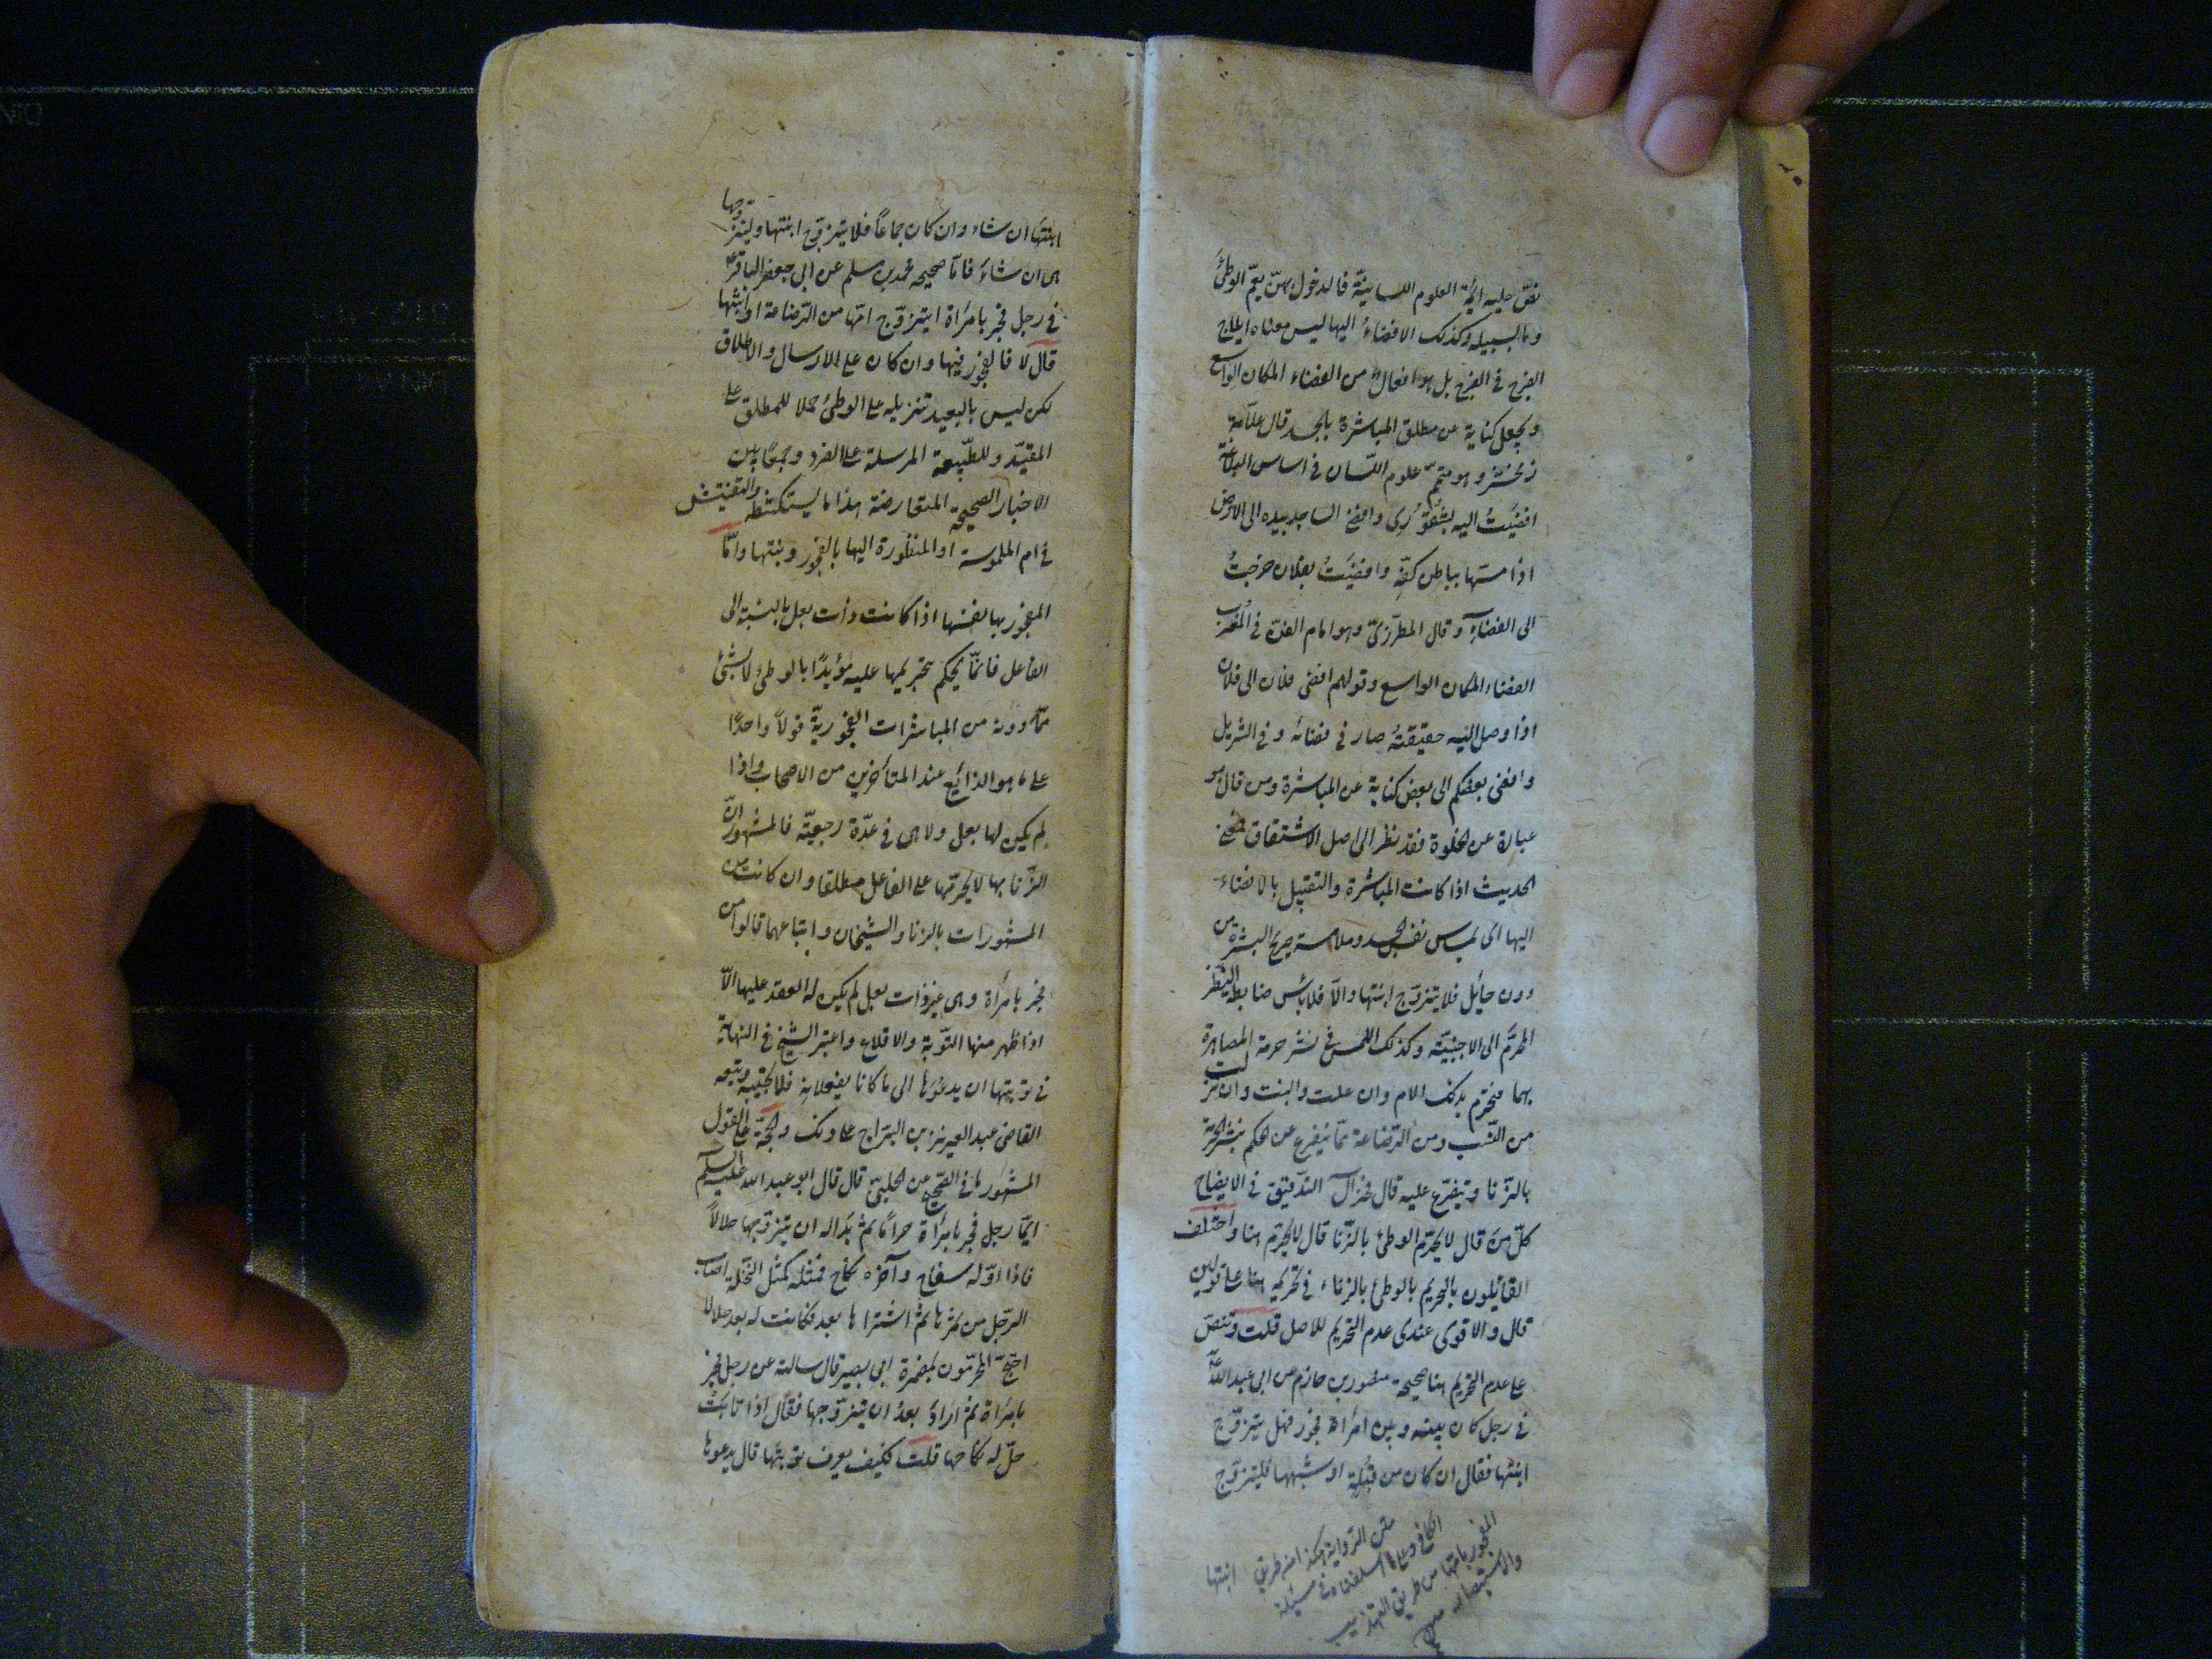 نصّ عليه ائمّة العلوم اللسانيّة فالدخول بهنّ يعمّ الوطئ
وما بسبيله وكذلك الافضاءُ اليها ليس معناه ايلاج
الفرج فى الفرج بل هو افعال من الفضاء المكان الواسع
ويجعل كناية عن مطلق المباشرة بالجسد قال علّامة
زمخشر وهو متمّم علوم اللّسان فى اساس البلاغة
افضيتُ اليه بشُقُورى وافضى الساجد بيده الى الارض
اذا مسّها بباطن كفّه وافضيتُ بفلان خرجتُ
الى الفضاء وقال المطرّزىّ وهو امام الفنّ فى المُغرب
الفضاء المكان الواسع وقولهم افضى فلان الى فلان
اذا وصل اليه حقيقتهُ صار فى فضائه وفى التنزيل
وافضى بعضكم الى بعض كناية عن المباشرة ومن قال هو
عبارة عن الخلوة فقد نظر الى اصل الاشتقاق
الحديث اذا كانت المباشرة والتقبيل بالافضاء
اليها اى بمساس نفس الجسد وملامسة صريح البشرة من
دون حائل فلا يتزوّج ابنتها والّا فلا بأس ضابطه النظر
المحرّم الى الاجنبيّة وكذلك اللمس فى نشر حرمة المصاهرة
بهما فتحرم بذلك الام وان علت والبنت وان نزلت
من النّسب ومن الرّضاعة ممّا يتفرع عن الحكم بنشر الحرمة
بالزّنا ويتفرّع عليه قال فى الايضاح
كلّ من قال لا يحرّم الوطئ بالزّنا قال لا يحرّم هنا واختلف
القائلون بالتحريم بالوطئ بالزناء فى تحريمه هنا على قولين
قال والاقوى عندى عدم التحريم للاصل قلت وتنصّ
على عدم التحريم هنا صحيحة منصور بن حازم عن ابى عبد اللّه ع
فى رجل كان بينه وبين امرأة فجور فهل يتزوّج
ابنتها فقال ان كان من قُبلة او شبهها فليتزوّج
ابنتها
متن الرواية هكذا من طريق
الكافى وعلى ما اسلفناه فى مسئلة
المفجور بامّها من طريق التهذيب
والاستبصار
ابنتها ان شاء وان كان جماعاً فلا يتزوّج ابنتها وليتزوّجها
هى ان شاءَ فامّا صحيحة محمد بن مسلم عن ابى جعفر الباقر ع
فى رجل فجر بامرأة ايتزوّج امّها من الرّضاعة او ابنتها
قال لا فالفجور فيها وان كان على الارسال والاطلاق
لكن ليس بالبعيد تنزيله على الوطئ حملا للمطلق على
المقيّد وللطّبيعة المرسلة على الفرد وجمعًا بين
الاخبار الصحيحة المتعارضة هذا ما يستكشفه والتفتيش
فى ام الملموسة او المنظورة اليها بالفجور وبنتها وامّا
المفجور بها نفسها اذا كانت ذات بعل بالنسبة الى
الفاعل فانّما يحكم بتحريمها عليه مؤبدًا بالوطئ لا بشئ
ممّا دونه من المباشرات الفجوريّة قولاً واحدًا
على ما هو الذائع عند المتأخرين من الاصحاب واذا
لم يكن لها بعل ولا هى فى عدّة رجعيّة فالمشهور انّ
الزّنا بها لا يحرّمها على الفاعل مطلقا وان كانت من
المشهورات بالزنا والشيخان واتباعهما قالوا من
فجر بامرأة وهى غير ذات بعل لم يكن له العقد عليها الّا
اذا ظهر منها التّوبة والاقلاع واعتبر الشيخ فى النهاية
فى توبتها ان يدعُوَها الى ما كانا يفعلانه فلا تجيبه وتبعه
القاضى عبد العزيز بن البرّاج على ذلك والحجّة على القول
المشهور ما فى الصّحيح عن الحلبىّ قال قال ابو عبد الله عليه السلم
ايّما رجل فجر بامرأة حرامًا ثمّ بدا له ان يتزوّجها حلالاً
فاذا اوّله سفاح وآخره نكاح فمثله كمثل النّخلة اصاب
الرّجل من ثمرها ثمّ اشتراها بعد فكانت له بعد حلالا
احتجّ المحرّمون بمضمرة ابى بصير قال سالته عن رجل فجر
بامرأة ثم ارادَ بعدُ ان يتزوّجها فقال اذا تابَتْ
حلّ له نكاحها قلت فكيف يعرف توبتها قال يدعوها